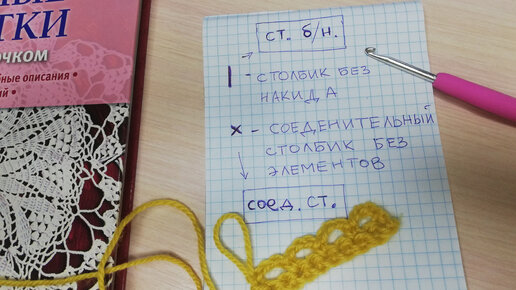 ТКИ
чком
ные описания •
ий •
ст. б/н.
| - столбик без
накида
x - соеденительный
столбик без
элементов
соед. ст.